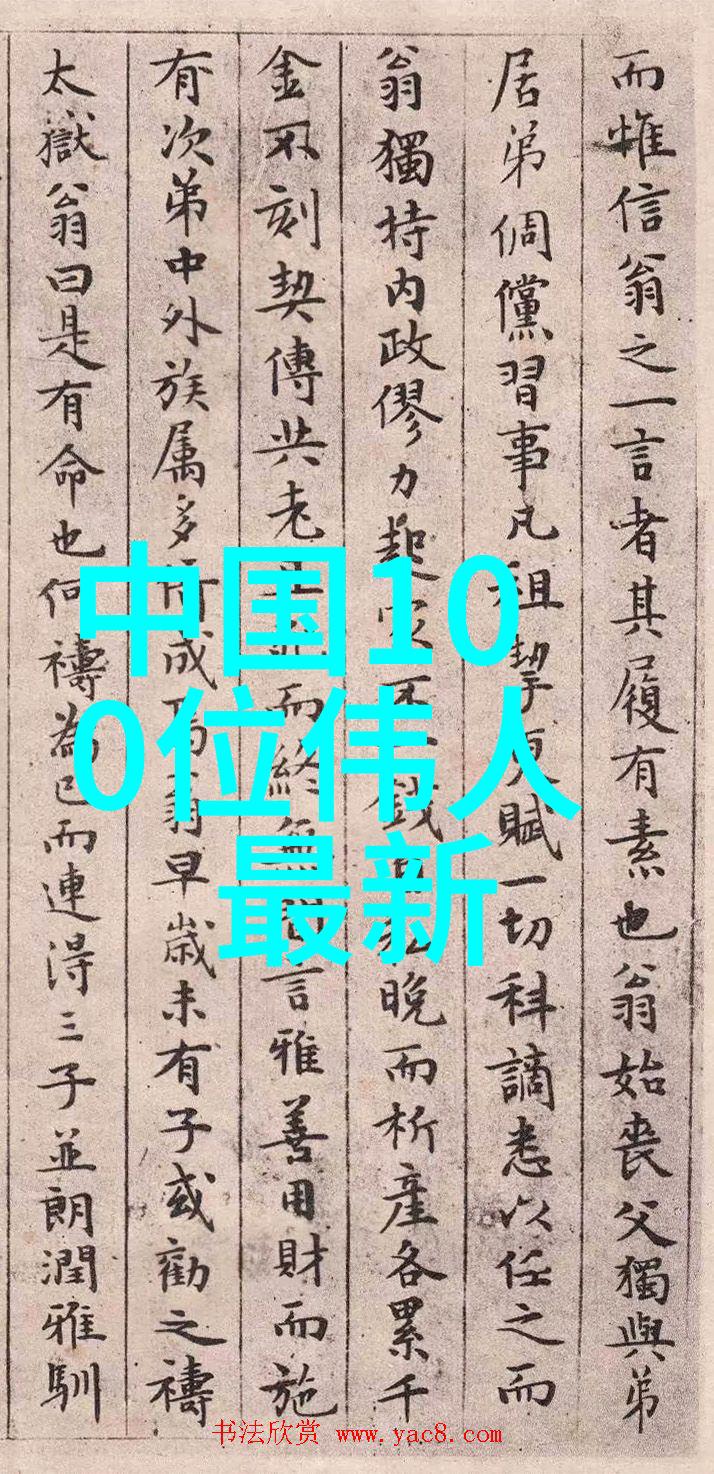 而惟信翁之一言者其履有素也翁始喪父獨與弟
居弟倜儻習事凡租挈更賦一切科謫悉以任之而
翁獨持内政僇力起家不錢晚而析產各累千
金不刻契傳共老而終無言雅善用財而施
有次弟中外族属多所成翁早歲未有子或勸之禱
太嶽翁曰是有命也何禱為已而連得三子並朗潤雅馴
中国10
0位伟人
最新
书法欣赏 www.yac8.com